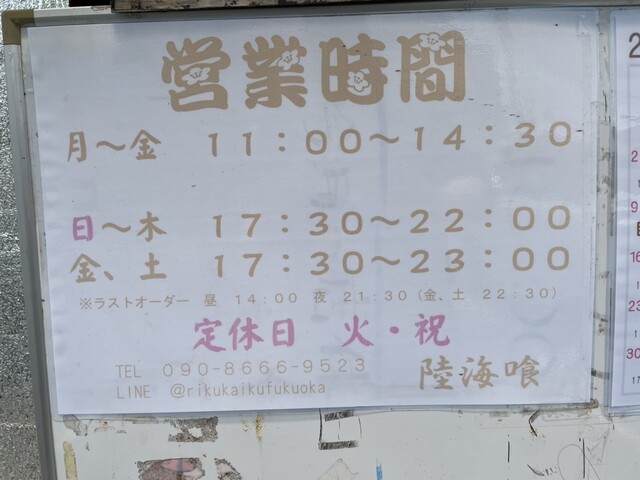 営業時間
月～金 11：00～14：30
日～木 17：30～22：00
金、土 17：30～23：00
※ラストオーダー 昼 14：00 夜 21：30（金、土 22：30）
定休日 火・祝
TEL 090-8666-9523 陸海喰
LINE @rikukaikufukuoka
2
2
9
16
23
30